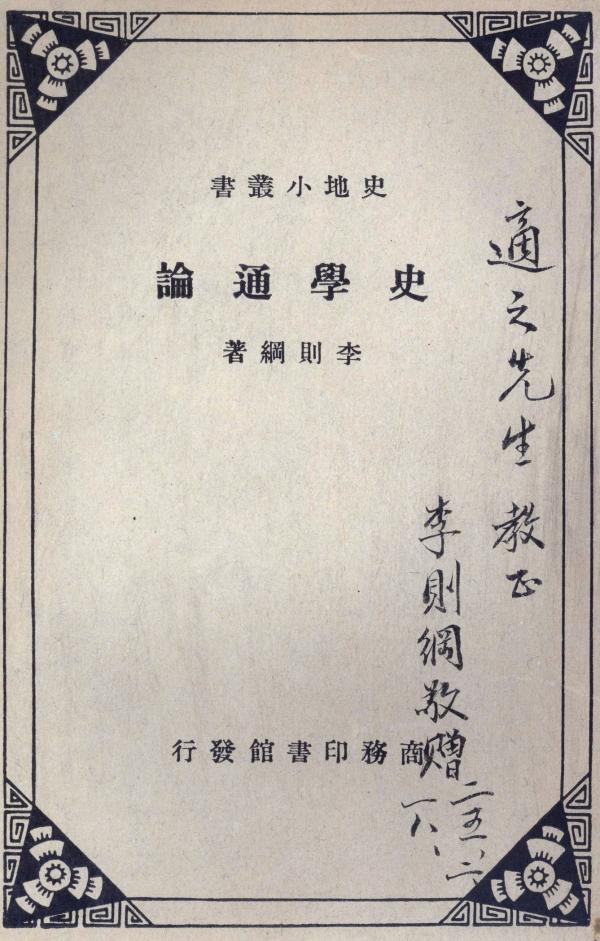 史地小叢書
史學通論
李則綱著
商務印書館發行
適之先生教正
李則綱敬贈